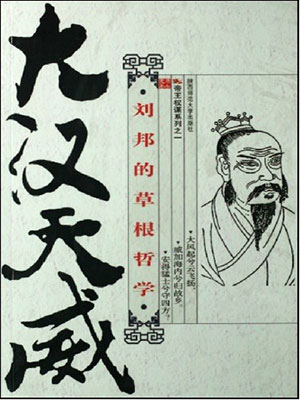 大汉天威
·刘邦的草根哲学·
帝王权谋系列之一
陕西师范大学出版社
·大风起兮云飞扬，
·威加海内兮归故乡。
·安得猛士兮守四方？